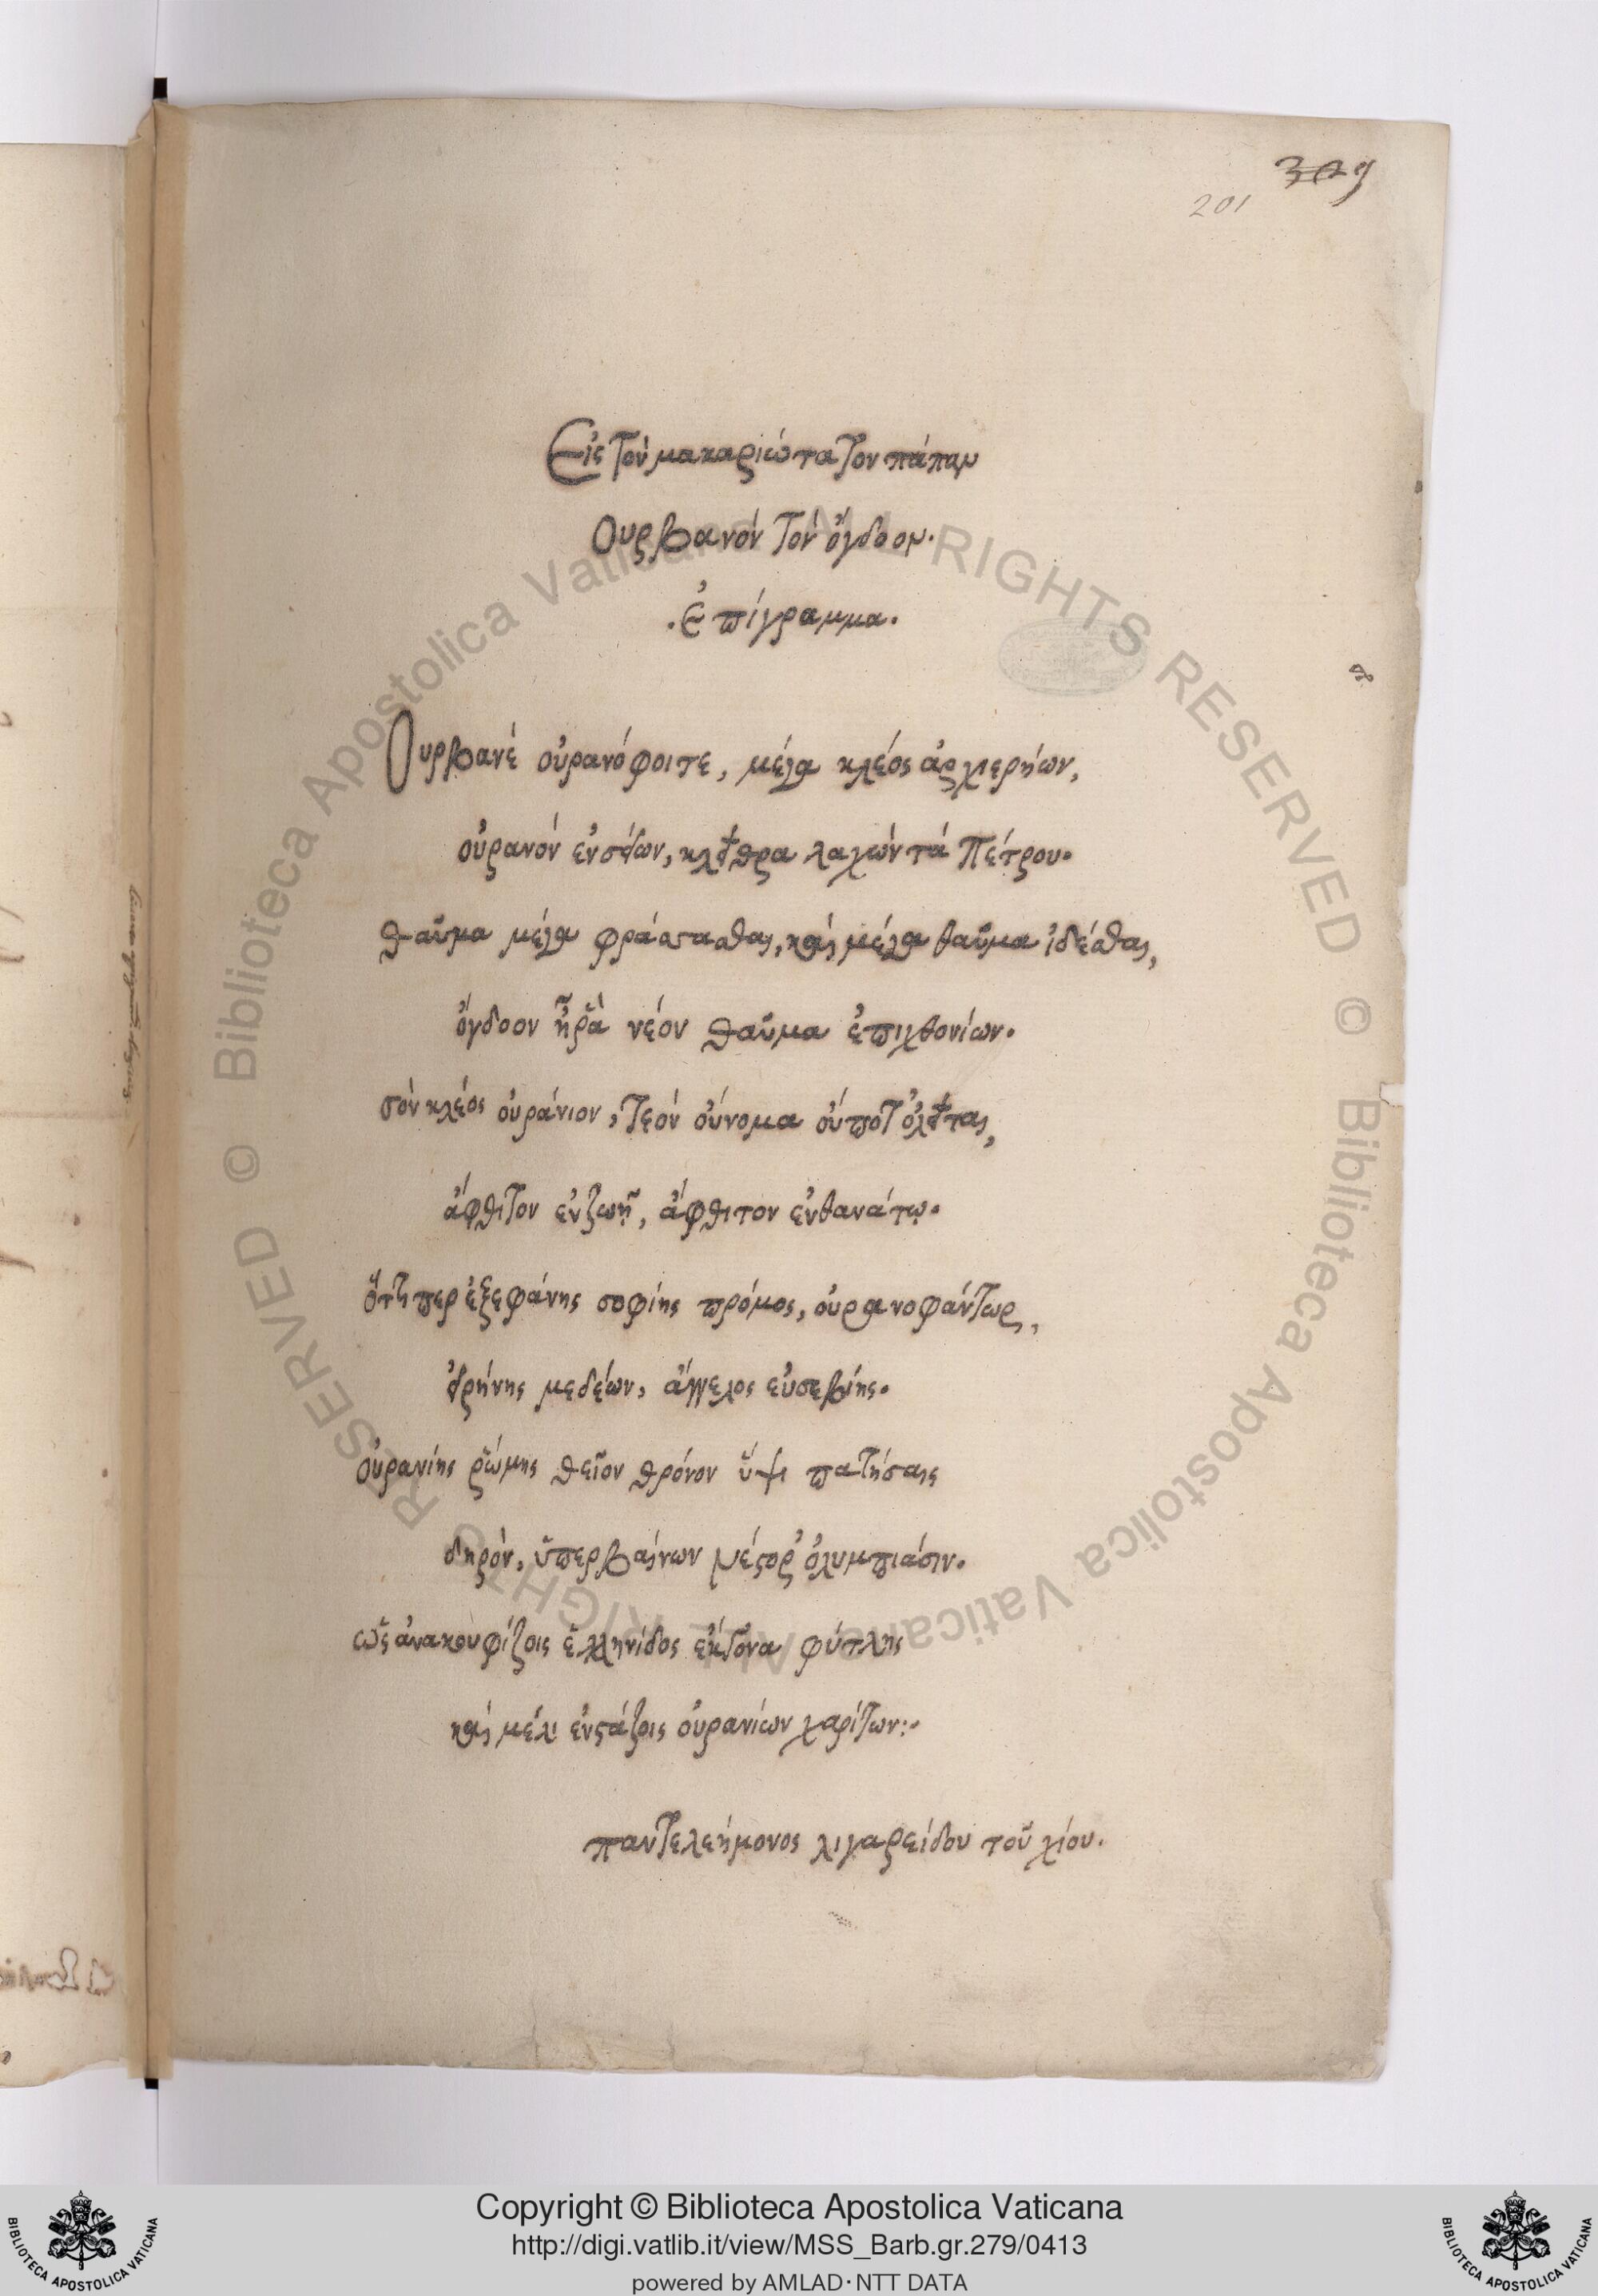 309
201
Εἰς τὸν μακαριώτατον πάπαν
Ουρβανὸν τὸν ὄγδοον.
·Ἐπίγραμμα.
Ουρβανὲ οὐρανόφοιτε, μέγα κλέος ἀρχιερήων,
οὐρανὸν ἐνσείων, κλεῖθρα λαχὼν τὰ Πέτρου.
θαῦμα μέγα φράσασθαι, καὶ μέγα θαῦμα ἰδέσθαι,
ὄγδοον ἦ ῥὰ νέον θαῦμα ἐπιχθονίων.
σὸν κλέος οὐράνιον, τεὸν οὔνομα οὔποτ' ὀλεῖται,
ἄφθιτον ἐν ζωῇ, ἄφθιτον ἐν θανάτῳ.
ὅττι περ ἐξεφάνης σοφίης πρόμος, οὐρανοφάντωρ,
εἰρήνης μεδέων, ἄγγελος εὐσεβίης.
Οὐρανίης ῥώμης θεῖον θρόνον ὕψι πατήσαις
δηρὸν, ὑπερβαίνων Νέστορ' ὀλυμπιάσιν.
ὣς ἀνακουφίζοις ἑλληνίδος ἔκγονα φύτλης
καὶ μέλι ἐνστάζοις οὐρανίων χαρίτων:·
παντελεήμονος λιγαρείδου τοῦ χίου.
© Biblioteca Apostolica Vaticana ALL RIGHTS RESERVED © Biblioteca Apostolica Vaticana ALL RIGHTS RESERVED
BIBLIOTECA APOSTOLICA VATICANA
Copyright © Biblioteca Apostolica Vaticana
http://digi.vatlib.it/view/MSS_Barb.gr.279/0413
powered by AMLAD·NTT DATA
BIBLIOTECA APOSTOLICA VATICANA